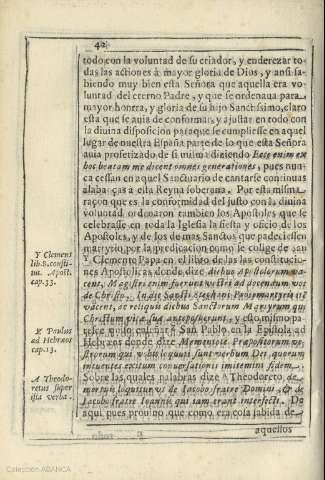 42
todo con la voluntad de su criador, y enderezar to-
das las actiones à mayor gloria de Dios, y ansi sa-
biendo muy bien esta Señora que aquella era vo-
luntad del eterno Padre, y que se ordenaua para
mayor honrra, y gloria de su hijo Sanctissimo, claro
esta que se auia de conformar, y ajustar en todo con
la diuina disposicion para que se cumpliesse en aquel
lugar de nuestra España parte de lo que esta Señora
auia profetizado de si misma diziendo Ecce enim ex
hoc beatam me dicent omnes generationes, pues nun-
ca cessan en aquel Sanctuario de cantarse continuas
alabanças a esta Reyna soberana. Por esta misma
raçon que es la conformidad del justo con la diuina
voluntad ordenaron tambien los Apostoles que se
celebrasse en toda la Iglesia la fiesta y oficio de los
Apostoles, y de los de mas Sanctos que padeciessen
martyrio por la predicacion como se colige de san
Y Clemente Papa en el libro de las constitucio-
nes Apostolicas donde dize diebus Apostolorum va-
cent, Magistri enim fuerunt vestri ad docendum vos
de Christo. In die Sancti Stephani Protomartyris
vacent, ac reliquis diebus Sanctorum Martyrum qui
Christum vitæ suæ anteposuerunt, y esto mismo pa-
resce quiso enseñar San Pablo en la Epistola ad
Hebræos donde dize Mementote Præpositorum ve-
strorum qui vobis loquuti sunt verbum Dei, quorum
intuentes exitum conuersationis imitemini fidem.
Sobre las quales palabras dize Theodoreto de
mortuis loquitur vt de Iacobo fratre Domini, & de
Iacobo fratre Ioannis qui iam erant interfecti. De
aqui pues prouino que como era cosa sabida de
aquellos
Y Clement
lib. 8. consti-
tut. Apost.
cap. 33.
Paulus
ad Hebræos
cap. 13.
A Theodo-
retus super
ista verba.
Colección ABANCA